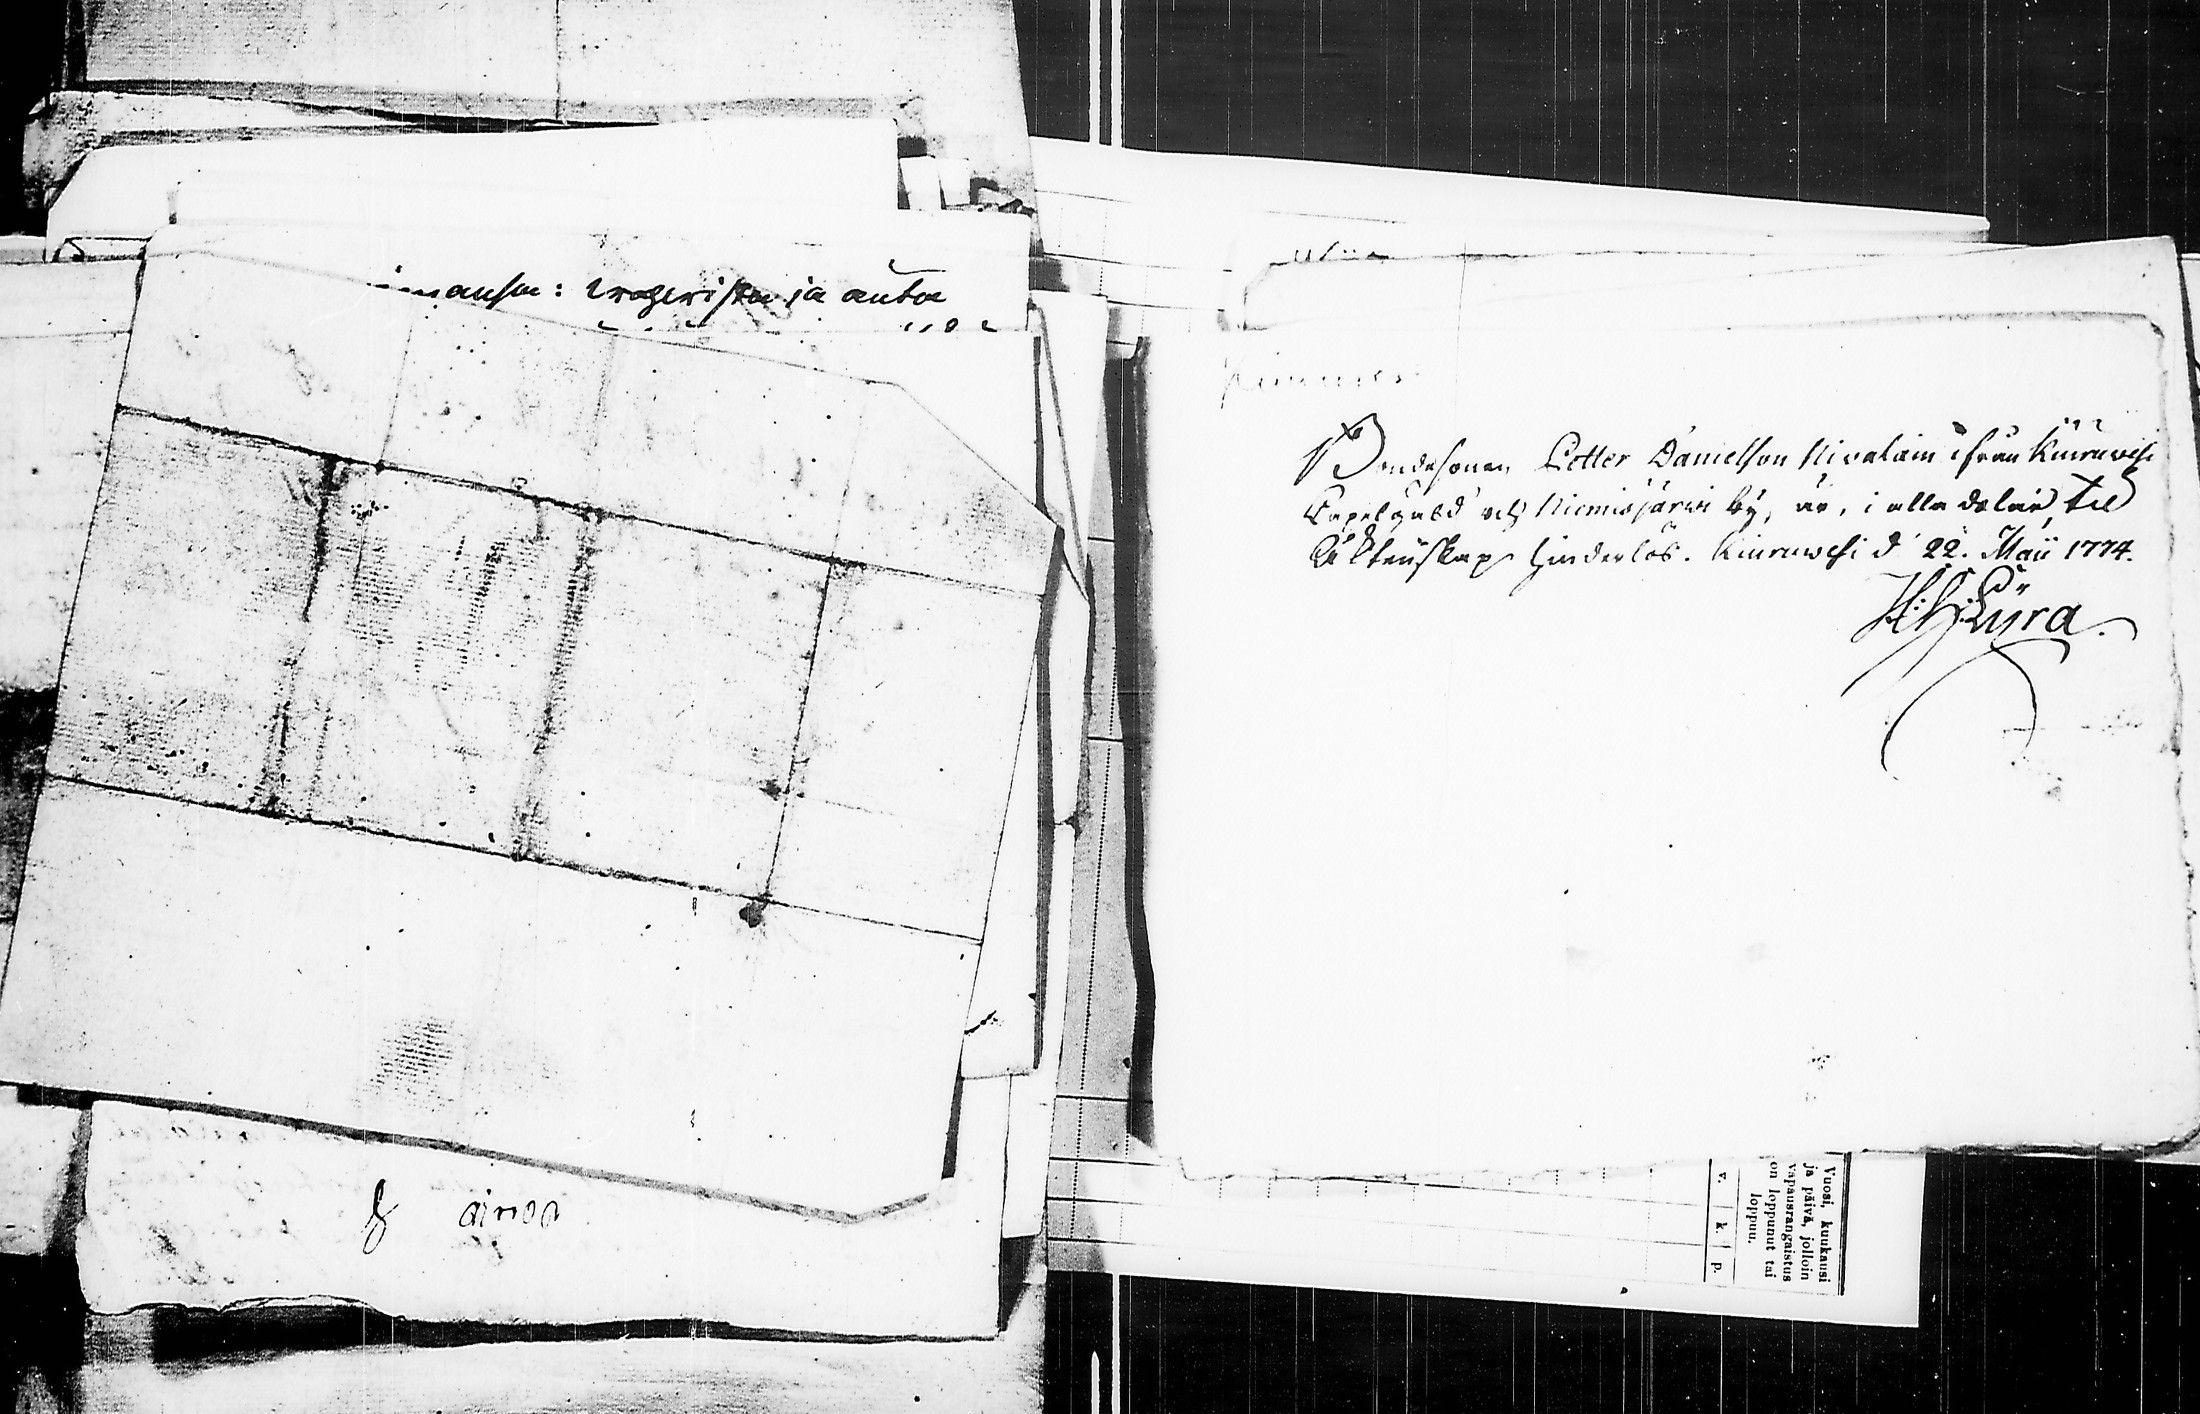 ja auton
ainoa
Bondesonen Petter Danielson Nivalain ifrån Kiuruwesi
Capelgäld och Niemisjärwi by, är, i alla delar, til
Äktenskap hinderlös. Kiuruwesi d 22. Maii 1774.
Lyra.
Vuosi, kuukausi
ja päivä, jolloin
vapausrangaistus
on loppunut tai
loppuu.
v. k. p.